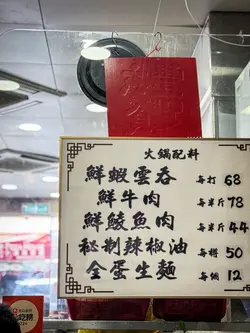 火鍋配料
鮮蝦雲吞 每打 68
鮮牛肉 每半斤 78
鮮鯪魚肉 每半斤 44
秘制辣椒油 每樽 50
全蛋生麵 每個 12